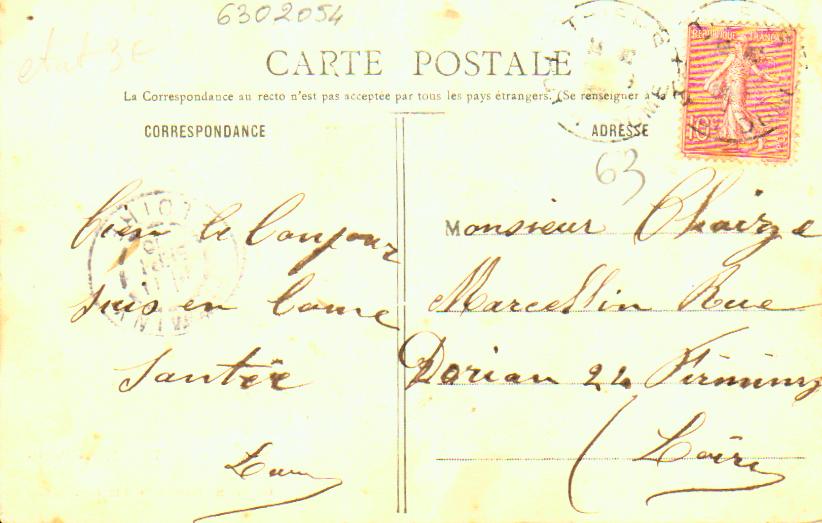 6302054
etat 3E
CARTE POSTALE
La Correspondance au recto n'est pas acceptée par tous les pays étrangers. (Se renseigner à la
CORRESPONDANCE
ADRESSE
REPUBLIQUE FRANÇAISE
10
63
bien le bonjour
suis en bonne
santée
Monsieur Chaize
Marcellin Rue
Dorian 24 Firminy
Loire
LOIRE